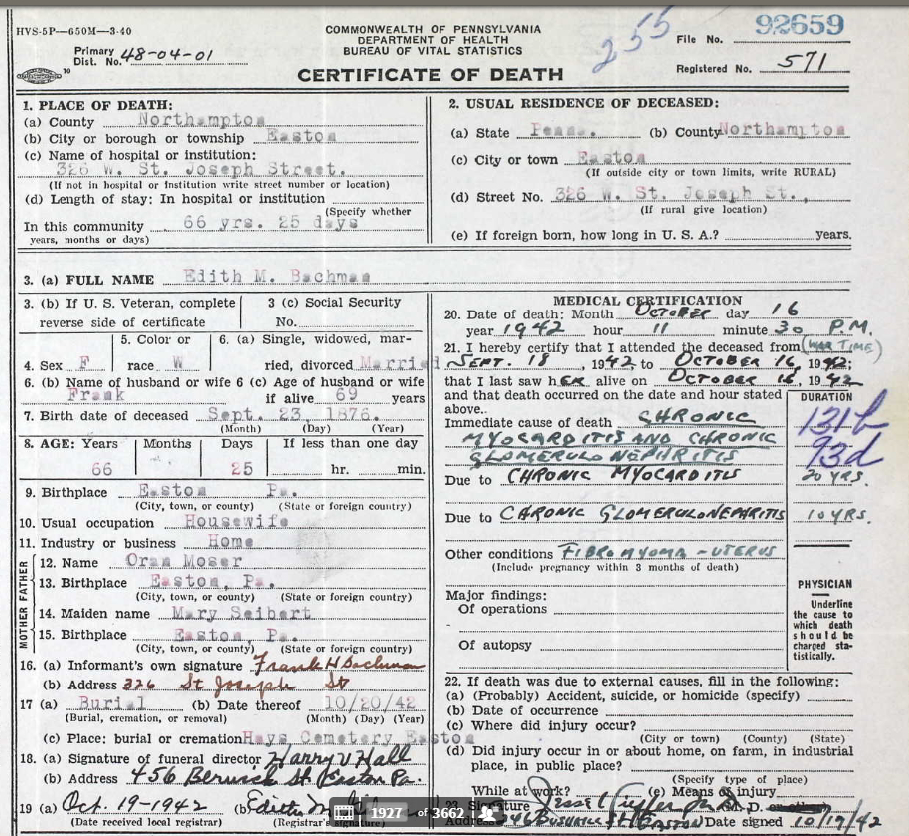 HVS-5P—650M—3-40
COMMONWEALTH OF PENNSYLVANIA
DEPARTMENT OF HEALTH
BUREAU OF VITAL STATISTICS
CERTIFICATE OF DEATH
Primary Dist. No. 48-04-01
255
File No. 92659
Registered No. 571
1. PLACE OF DEATH:
(a) County Northampton
(b) City or borough or township Easton
(c) Name of hospital or institution:
326 W. St. Joseph Street.
(If not in hospital or institution write street number or location)
(d) Length of stay: In hospital or institution
(Specify whether
In this community 66 yrs. 25 days
years, months or days)
2. USUAL RESIDENCE OF DECEASED:
(a) State Penna. (b) County Northampton
(c) City or town Easton
(If outside city or town limits, write RURAL)
(d) Street No. 326 W. St. Joseph St.,
(If rural give location)
(e) If foreign born, how long in U. S. A.? years.
3. (a) FULL NAME Edith M. Bachman
3. (b) If U. S. Veteran, complete
reverse side of certificate
3 (c) Social Security
No.
4. Sex F
5. Color or
race W
6. (a) Single, widowed, mar-
ried, divorced Married
6. (b) Name of husband or wife
Frank
6 (c) Age of husband or wife
if alive 69 years
7. Birth date of deceased Sept. 23, 1876.
(Month) (Day) (Year)
8. AGE: Years Months Days If less than one day
66 25 hr. min.
9. Birthplace Easton Pa.
(City, town, or county) (State or foreign country)
10. Usual occupation Housewife
11. Industry or business Home
FATHER
12. Name Oram Moser
13. Birthplace Easton, Pa.
(City, town, or county) (State or foreign country)
MOTHER
14. Maiden name Mary Seibert
15. Birthplace Easton, Pa.
(City, town, or county) (State or foreign country)
16. (a) Informant's own signature Frank H Bachman
(b) Address 326 St Joseph St
17 (a) Burial (b) Date thereof 10/20/42
(Burial, cremation, or removal) (Month) (Day) (Year)
(c) Place: burial or cremation Hays Cemetery Easton
18. (a) Signature of funeral director Harry V Hall
(b) Address 456 Berwick St. Easton Pa.
19 (a) Oct. 19-1942 (b) Edith
(Date received local registrar) (Registrar's signature)
MEDICAL CERTIFICATION
20. Date of death: Month OCTOBER day 16
year 1942 hour 11 minute 30 P.M.
21. I hereby certify that I attended the deceased from (WAR TIME)
SEPT. 18, 1942, to OCTOBER 16, 1942;
that I last saw hER alive on OCTOBER 16, 1942
and that death occurred on the date and hour stated
above.
DURATION
Immediate cause of death CHRONIC
MYOCARDITIS AND CHRONIC
GLOMERULONEPHRITIS
131b
93d
Due to CHRONIC MYOCARDITIS 20 YRS.
Due to CHRONIC GLOMERULONEPHRITIS 10 YRS.
Other conditions FIBROMYOMA - UTERUS
(Include pregnancy within 3 months of death)
Major findings:
Of operations
Of autopsy
PHYSICIAN
Underline
the cause to
which death
should be
charged sta-
tistically.
22. If death was due to external causes, fill in the following:
(a) (Probably) Accident, suicide, or homicide (specify)
(b) Date of occurrence
(c) Where did injury occur?
(City or town) (County) (State)
(d) Did injury occur in or about home, on farm, in industrial
place, in public place?
(Specify type of place)
While at work? (e) Means of injury
23. Signature M.D.
Address BUSHKILL ST EASTON Date signed 10/17/42
1927 of 3662